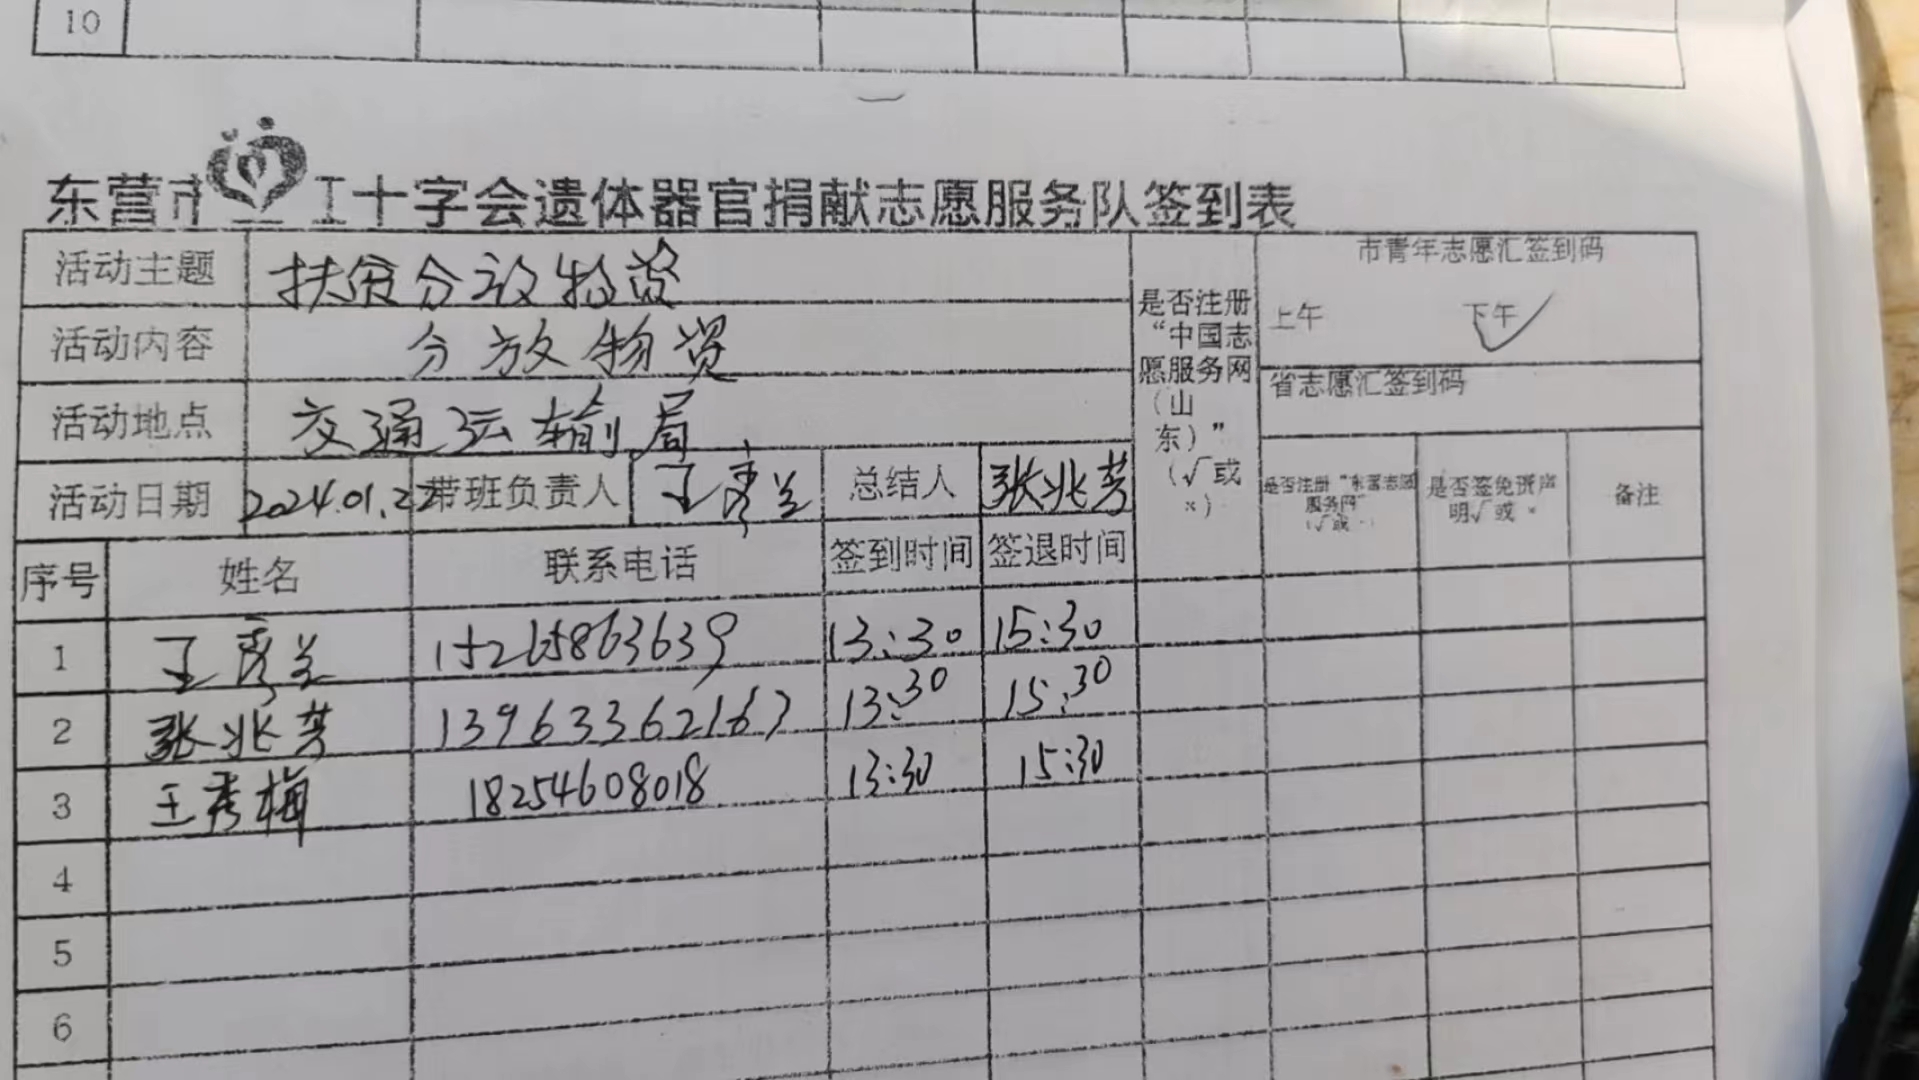 10
东营市红十字会遗体器官捐献志愿服务队签到表
活动主题 扶贫分放物资
活动内容 分放物资
活动地点 交通运输局
活动日期 2024.01.22 带班负责人 王秀兰 总结人 张兆芳
是否注册
“中国志
愿服务网
（山
东）”
（√或
×）
市青年志愿汇签到码
上午 下午
省志愿汇签到码
是否注册“东营志愿
服务网”
是否签免责声
明√或×
备注
序号 姓名 联系电话 签到时间 签退时间
1 王秀兰 15265863639 13:30 15:30
2 张兆芳 13963362167 13:30 15:30
3 王秀梅 18254608018 13:30 15:30
4
5
6